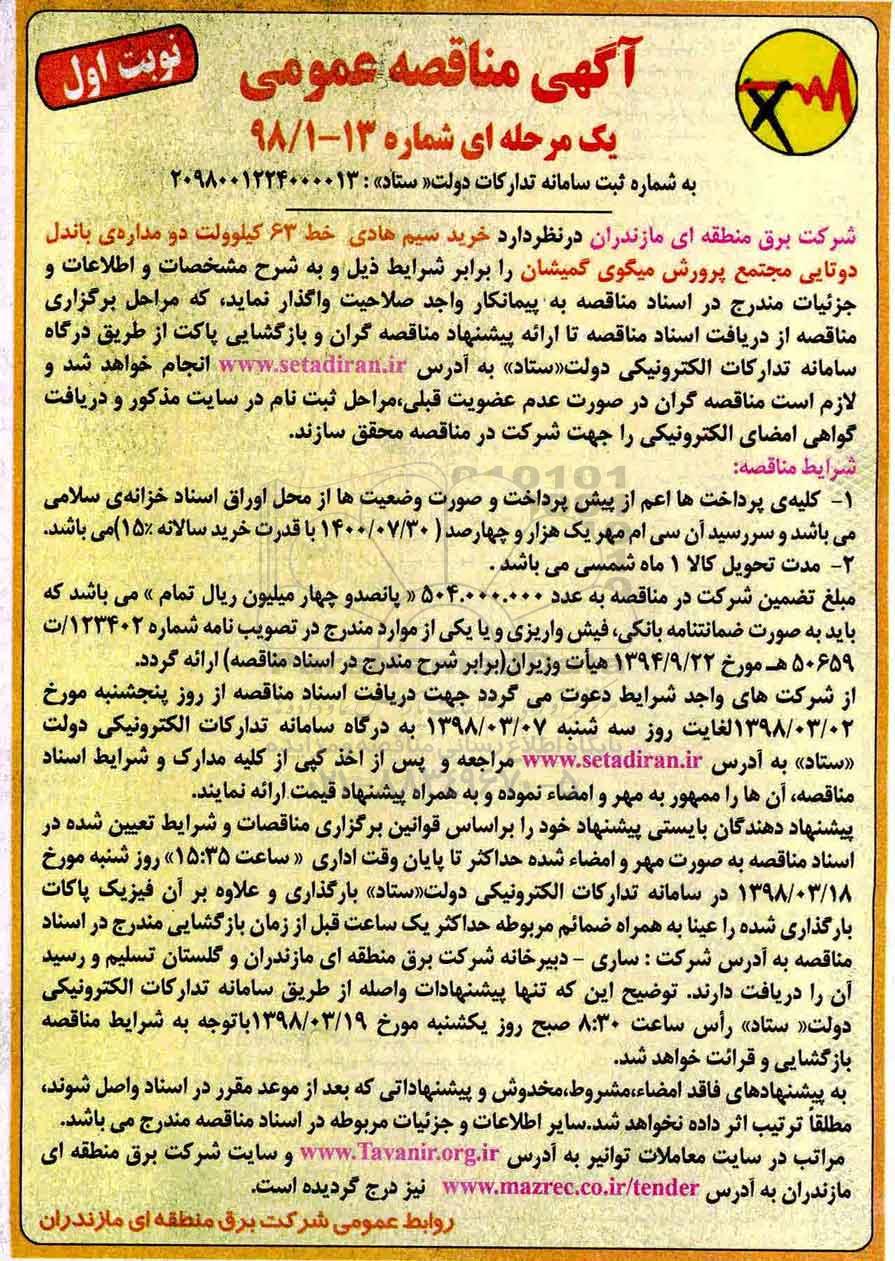 آگهی مناقصه عمومی
نوبت اول
یک مرحله ای شماره ۱۳-۹۸/۱
به شماره ثبت سامانه تدارکات دولت« ستاد» : ۲۰۹۸۰۰۱۲۲۴۰۰۰۰۱۳
شرکت برق منطقه ای مازندران درنظردارد خرید سیم هادی خط ۶۳ کیلوولت دو مداره‌ی باندل
دوتایی مجتمع پرورش میگوی گمیشان را برابر شرایط ذیل و به شرح مشخصات و اطلاعات و
جزئیات مندرج در اسناد مناقصه به پیمانکار واجد صلاحیت واگذار نماید، که مراحل برگزاری
مناقصه از دریافت اسناد مناقصه تا ارائه پیشنهاد مناقصه گران و بازگشایی پاکت از طریق درگاه
سامانه تدارکات الکترونیکی دولت«ستاد» به آدرس www.setadiran.ir انجام خواهد شد و
لازم است مناقصه گران در صورت عدم عضویت قبلی،مراحل ثبت نام در سایت مذکور و دریافت
گواهی امضای الکترونیکی را جهت شرکت در مناقصه محقق سازند.
شرایط مناقصه:
۱- کلیه‌ی پرداخت ها اعم از پیش پرداخت و صورت وضعیت ها از محل اوراق اسناد خزانه‌ی سلامی
می باشد و سررسید آن سی ام مهر یک هزار و چهارصد ( ۱۴۰۰/۰۷/۳۰ با قدرت خرید سالانه ۱۵٪)می باشد.
۲- مدت تحویل کالا ۱ ماه شمسی می باشد .
مبلغ تضمین شرکت در مناقصه به عدد ۵۰۴.۰۰۰.۰۰۰ « پانصدو چهار میلیون ریال تمام » می باشد که
باید به صورت ضمانتنامه بانکی، فیش واریزی و یا یکی از موارد مندرج در تصویب نامه شماره ۱۲۳۴۰۲/ت
۵۰۶۵۹ هـ مورخ ۱۳۹۴/۹/۲۲ هیأت وزیران(برابر شرح مندرج در اسناد مناقصه) ارائه گردد.
از شرکت های واجد شرایط دعوت می گردد جهت دریافت اسناد مناقصه از روز پنجشنبه مورخ
۱۳۹۸/۰۳/۰۲لغایت روز سه شنبه ۱۳۹۸/۰۳/۰۷ به درگاه سامانه تدارکات الکترونیکی دولت
«ستاد» به آدرس www.setadiran.ir مراجعه و پس از اخذ کپی از کلیه مدارک و شرایط اسناد
مناقصه، آن ها را ممهور به مهر و امضاء نموده و به همراه پیشنهاد قیمت ارائه نمایند.
پیشنهاد دهندگان بایستی پیشنهاد خود را براساس قوانین برگزاری مناقصات و شرایط تعیین شده در
اسناد مناقصه به صورت مهر و امضاء شده حداکثر تا پایان وقت اداری « ساعت ۱۵:۳۵» روز شنبه مورخ
۱۳۹۸/۰۳/۱۸ در سامانه تدارکات الکترونیکی دولت«ستاد» بارگذاری و علاوه بر آن فیزیک پاکات
بارگذاری شده را عینا به همراه ضمائم مربوطه حداکثر یک ساعت قبل از زمان بازگشایی مندرج در اسناد
مناقصه به آدرس شرکت : ساری - دبیرخانه شرکت برق منطقه ای مازندران و گلستان تسلیم و رسید
آن را دریافت دارند. توضیح این که تنها پیشنهادات واصله از طریق سامانه تدارکات الکترونیکی
دولت« ستاد» رأس ساعت ۸:۳۰ صبح روز یکشنبه مورخ ۱۳۹۸/۰۳/۱۹باتوجه به شرایط مناقصه
بازگشایی و قرائت خواهد شد.
به پیشنهادهای فاقد امضاء،مشروط،مخدوش و پیشنهاداتی که بعد از موعد مقرر در اسناد واصل شوند،
مطلقاً ترتیب اثر داده نخواهد شد.سایر اطلاعات و جزئیات مربوطه در اسناد مناقصه مندرج می باشد.
مراتب در سایت معاملات توانیر به آدرس www.Tavanir.org.ir و سایت شرکت برق منطقه ای
مازندران به آدرس www.mazrec.co.ir/tender نیز درج گردیده است.
روابط عمومی شرکت برق منطقه ای مازندران